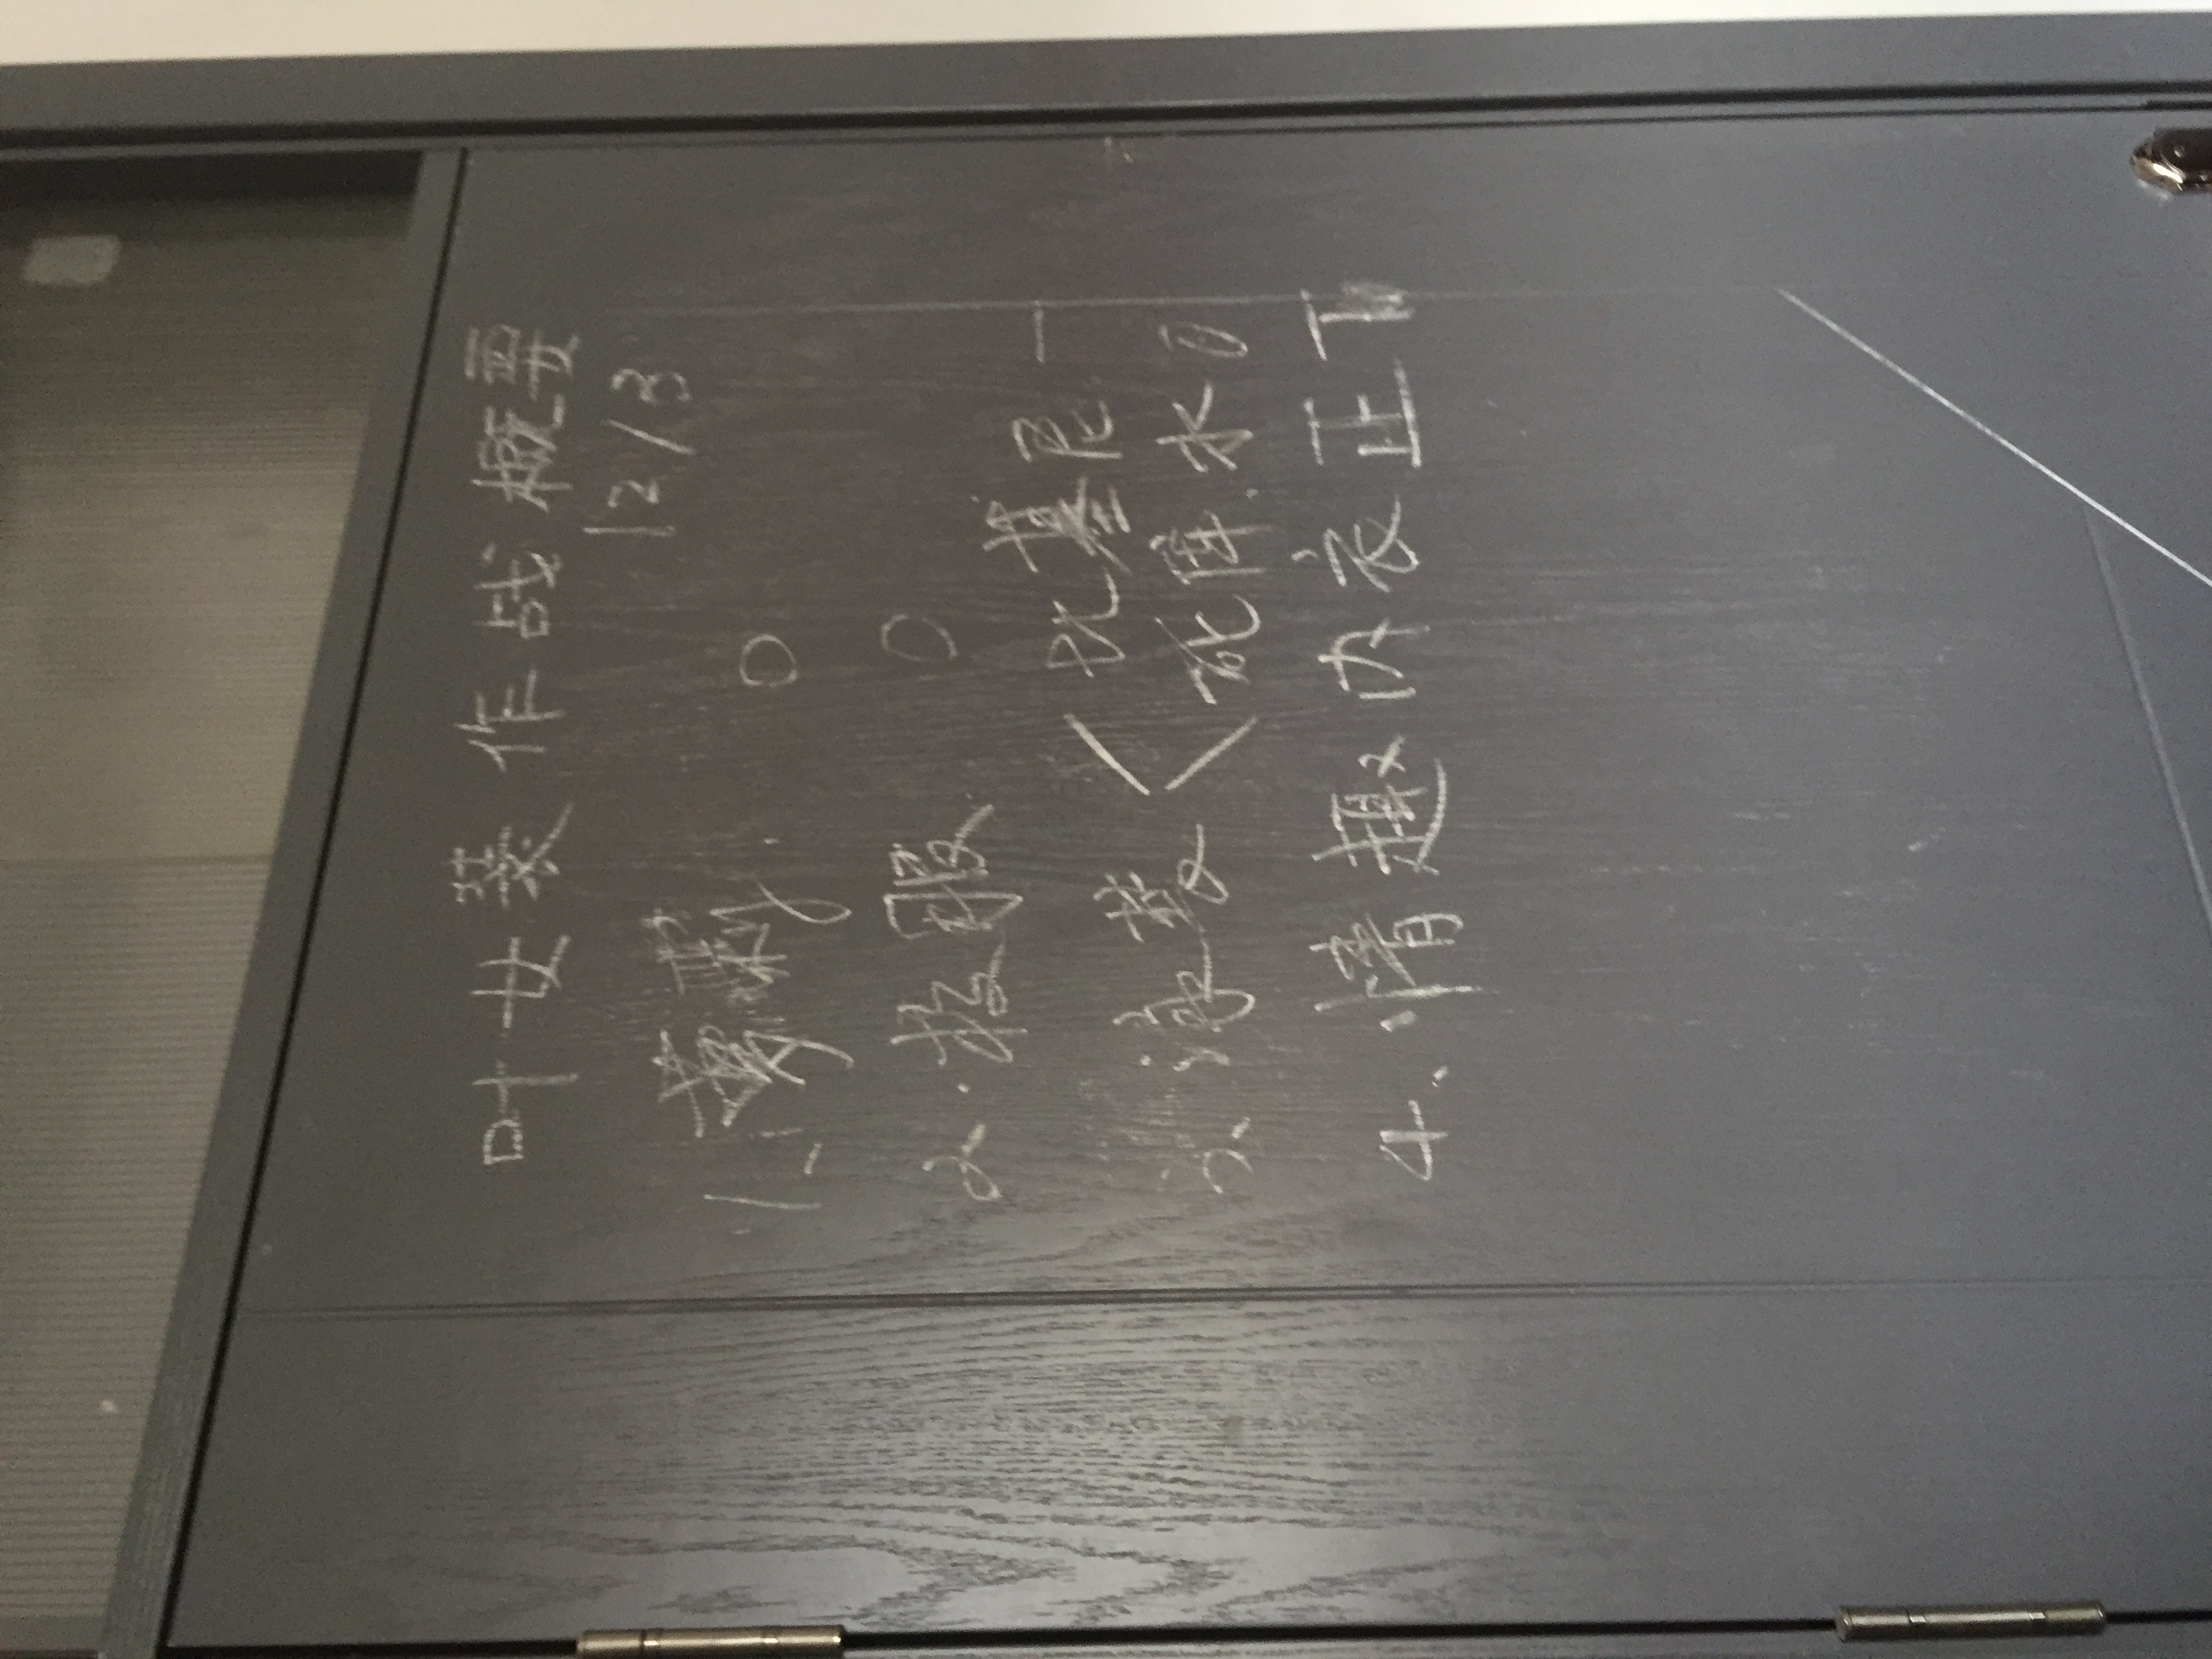 叶女装作战概要
12/3
1、萝莉 0
2.校服 0
3、泳装 < 比基尼 一
死库水 0
4、情趣内衣 正下